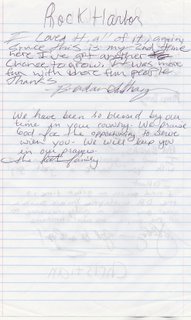 Rock Harbor
I Loved it all of it, again
since this is my 2nd time
here I've got another
chance to grow. It was more
fun with more fun people.
Thanks
We have been so blessed by our
time in your country. We praise
God for the opportunity to serve
with you. We will keep you
in our prayers.
The family